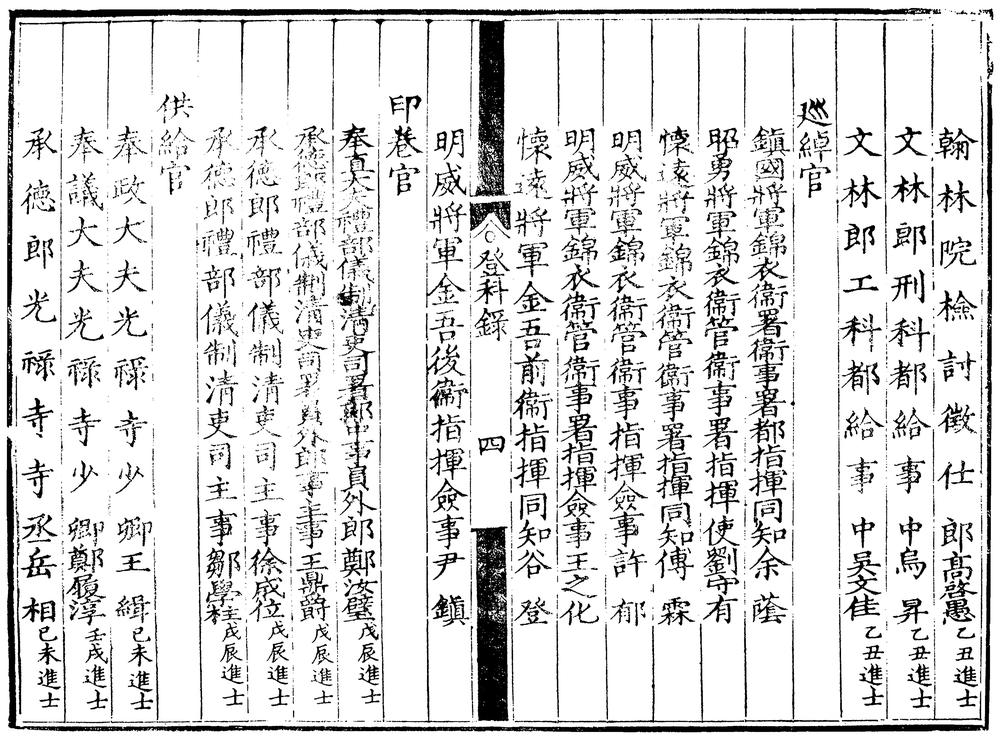 翰林院檢討徵仕郎高啓愚乙丑進士
文林郎刑科都給事中烏昇乙丑進士
文林郎工科都給事中吳文佳乙丑進士
廵綽官
鎮國將軍錦衣衞署衞事署都指揮同知余蔭
昭勇將軍錦衣衞管衞事署指揮使劉守有
懷遠將軍錦衣衞管衞事署指揮同知傅霖
明威將軍錦衣衞管衞事指揮僉事許郁
明威將軍錦衣衞管衞事署指揮僉事王之化
懷遠將軍金吾前衞指揮同知谷登
登科錄
四
明威將軍金吾後衞指揮僉事尹鎮
印卷官
奉直大夫禮部儀制清吏司署郎中事員外郎鄭汝璧戊辰進士
承德郎禮部儀制清吏司署員外郎事主事王鼎爵戊辰進士
承德郎禮部儀制清吏司主事徐成位戊辰進士
承德郎禮部儀制清吏司主事鄒學柱戊辰進士
供給官
奉政大夫光祿寺少卿王緝己未進士
奉議大夫光祿寺少卿鄭履淳壬戌進士
承德郎光祿寺寺丞岳相己未進士